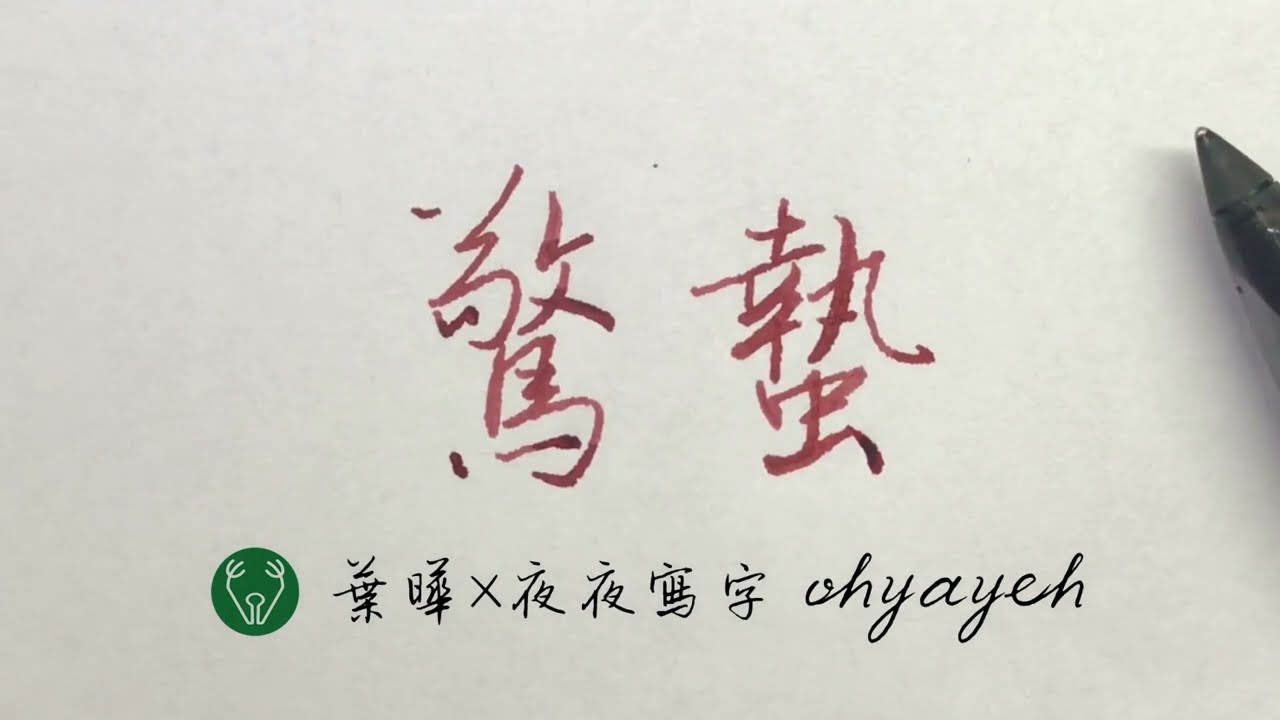 驚蟄
葉曄×夜夜寫字 ohyayeh